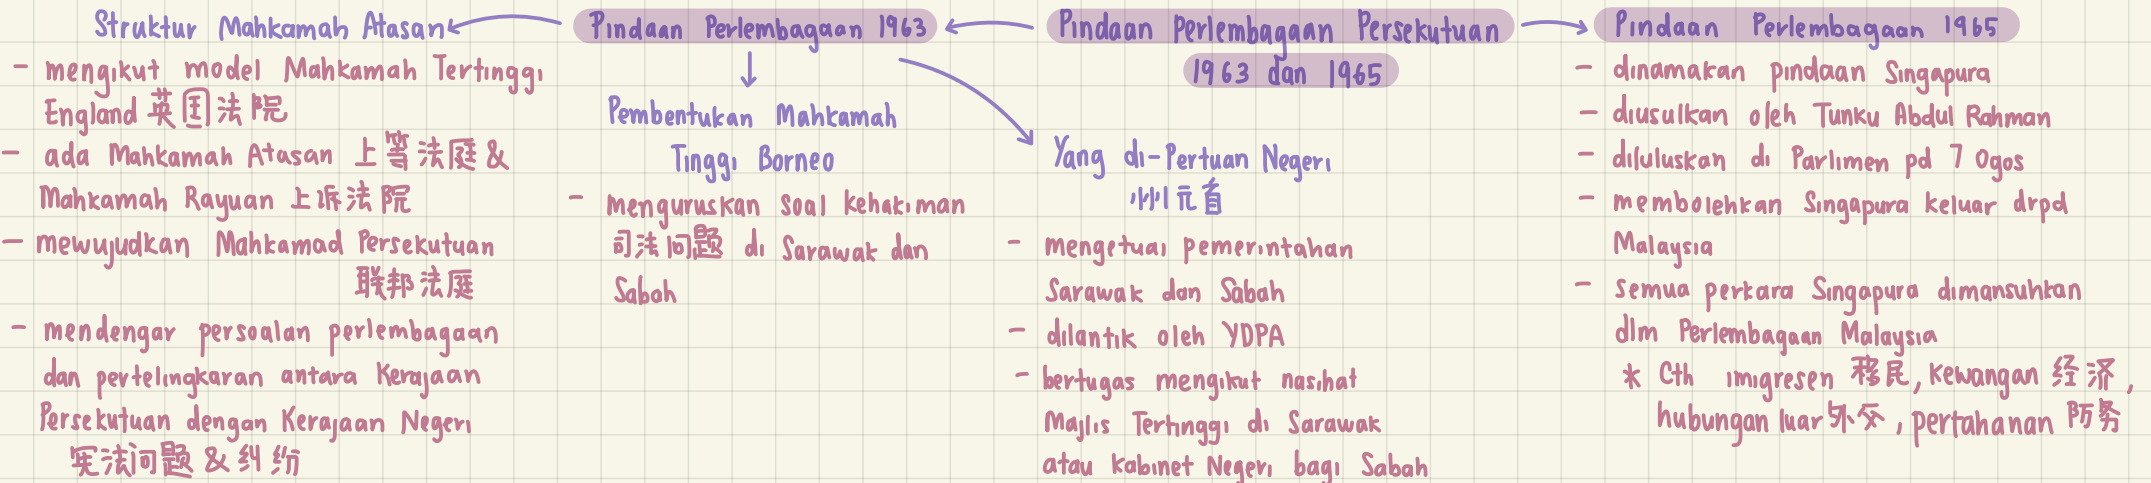 Pindaan Perlembagaan Persekutuan
1963 dan 1965
Pindaan Perlembagaan 1963
Struktur Mahkamah Atasan
- mengikut model Mahkamah Tertinggi
England 英国法院
- ada Mahkamah Atasan 上等法庭 &
Mahkamah Rayuan 上诉法院
- mewujudkan Mahkamad Persekutuan
联邦法庭
- mendengar persoalan perlembagaan
dan pertelingkaran antara Kerajaan
Persekutuan dengan Kerajaan Negeri
宪法问题 & 纠纷
Pembentukan Mahkamah
Tinggi Borneo
- menguruskan soal kehakiman
司法问题 di Sarawak dan
Sabah
Yang di-Pertuan Negeri
州元首
- mengetuai pemerintahan
Sarawak dan Sabah
- dilantik oleh YDPA
- bertugas mengikut nasihat
Majlis Tertinggi di Sarawak
atau Kabinet Negeri bagi Sabah
Pindaan Perlembagaan 1965
- dinamakan pindaan Singapura
- diusulkan oleh Tunku Abdul Rahman
- diluluskan di Parlimen pd 7 Ogos
- membolehkan Singapura keluar drpd
Malaysia
- semua perkara Singapura dimansuhkan
dlm Perlembagaan Malaysia
* Cth imigresen 移民, kewangan 经济,
hubungan luar 外交, pertahanan 防务